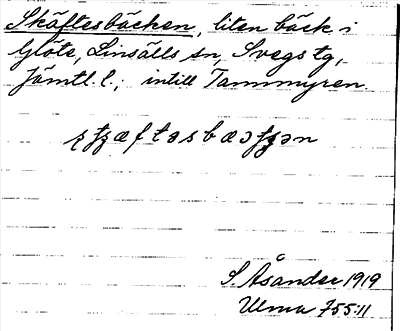 Skäftesbäcken, liten bäck i
Glöte, Linsälls sn, Svegs tg,
Jämtl. l.; intill Tammyren.
S. Åsander 1919
Ulma 755:11